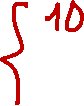 { 10